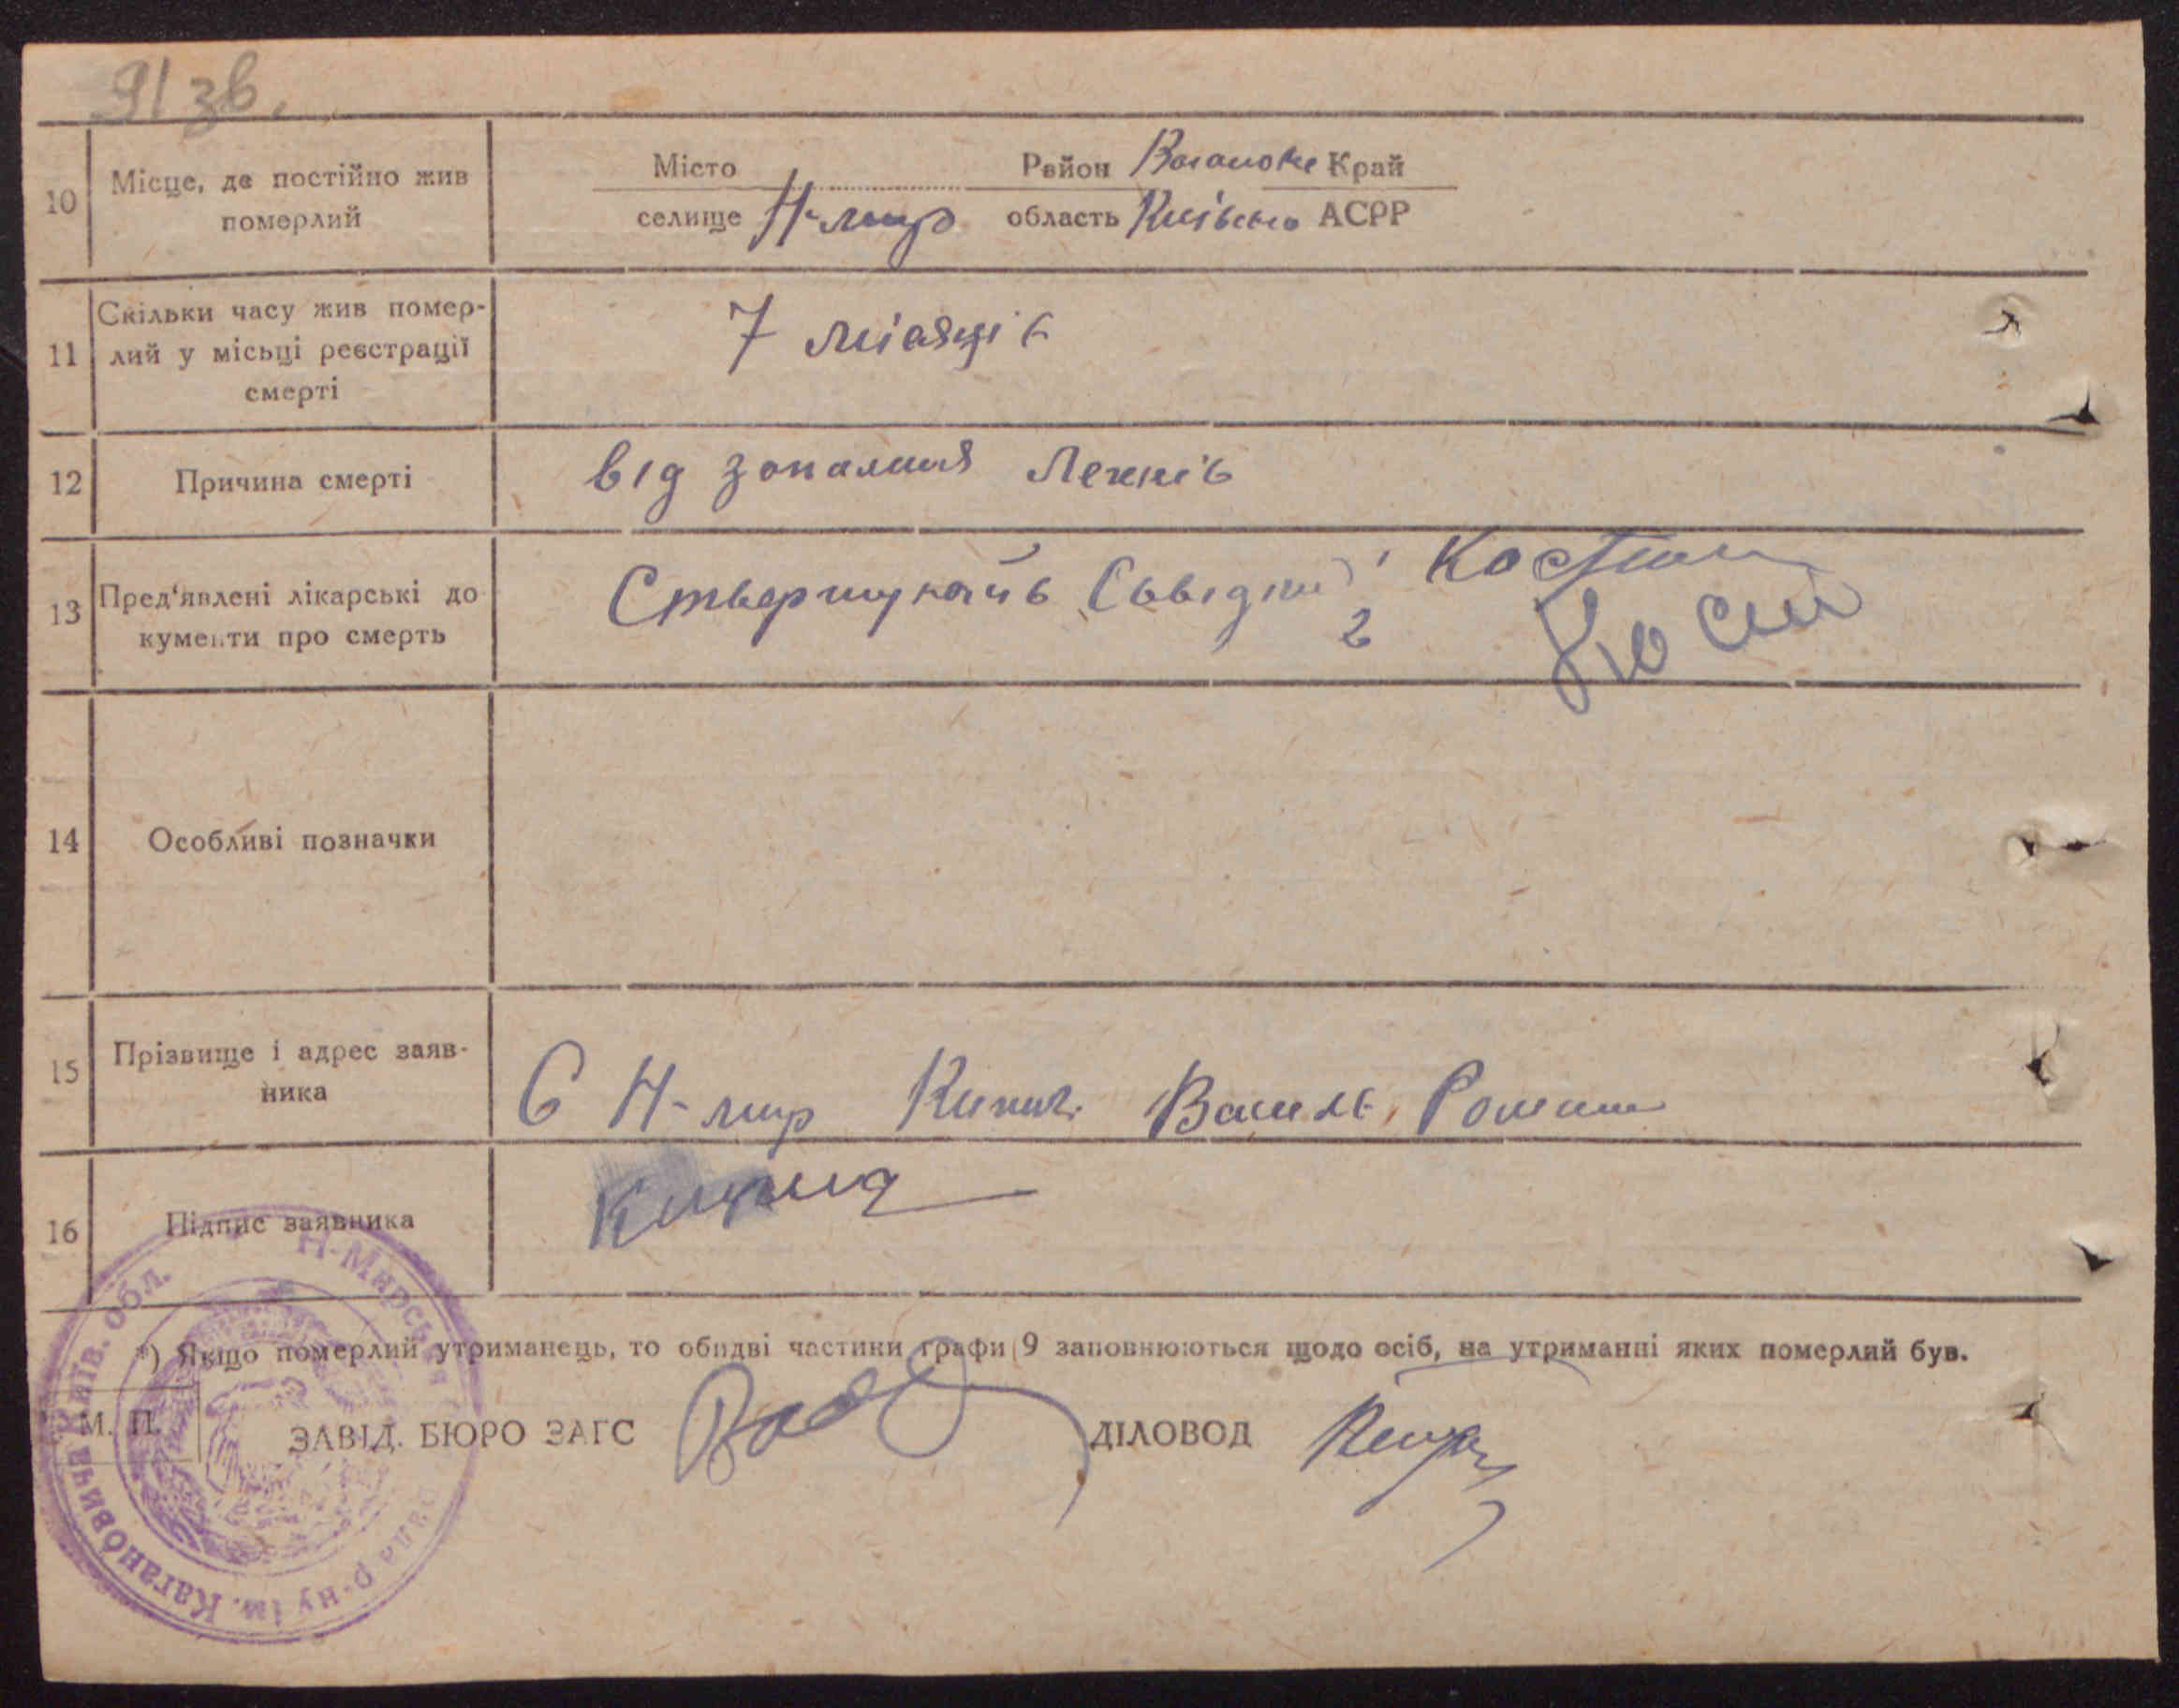 91 зв.
10 Місце, де постійно жив померлий
Місто Район Край
селище Н-мир область Київська АСРР
11 Скільки часу жив помер-
лий у місьці реєстрації
смерті
7 місяців
12 Причина смерті
від запалння Легнів
13 Пред'явлені лікарські до
кументи про смерть
14 Особливі позначки
15 Прізвище і адрес заяв-
ника
С Н-мир Василь
16 Підпис заявника
*) Якщо померлий утриманець, то обидві частини графи 9 заповнюються щодо осіб, на утриманні яких померлий був.
М. П.
ЗАВІД. БЮРО ЗАГС ДІЛОВОД
Н-Мирська р-ну ім. Кагановича Київ. обл.